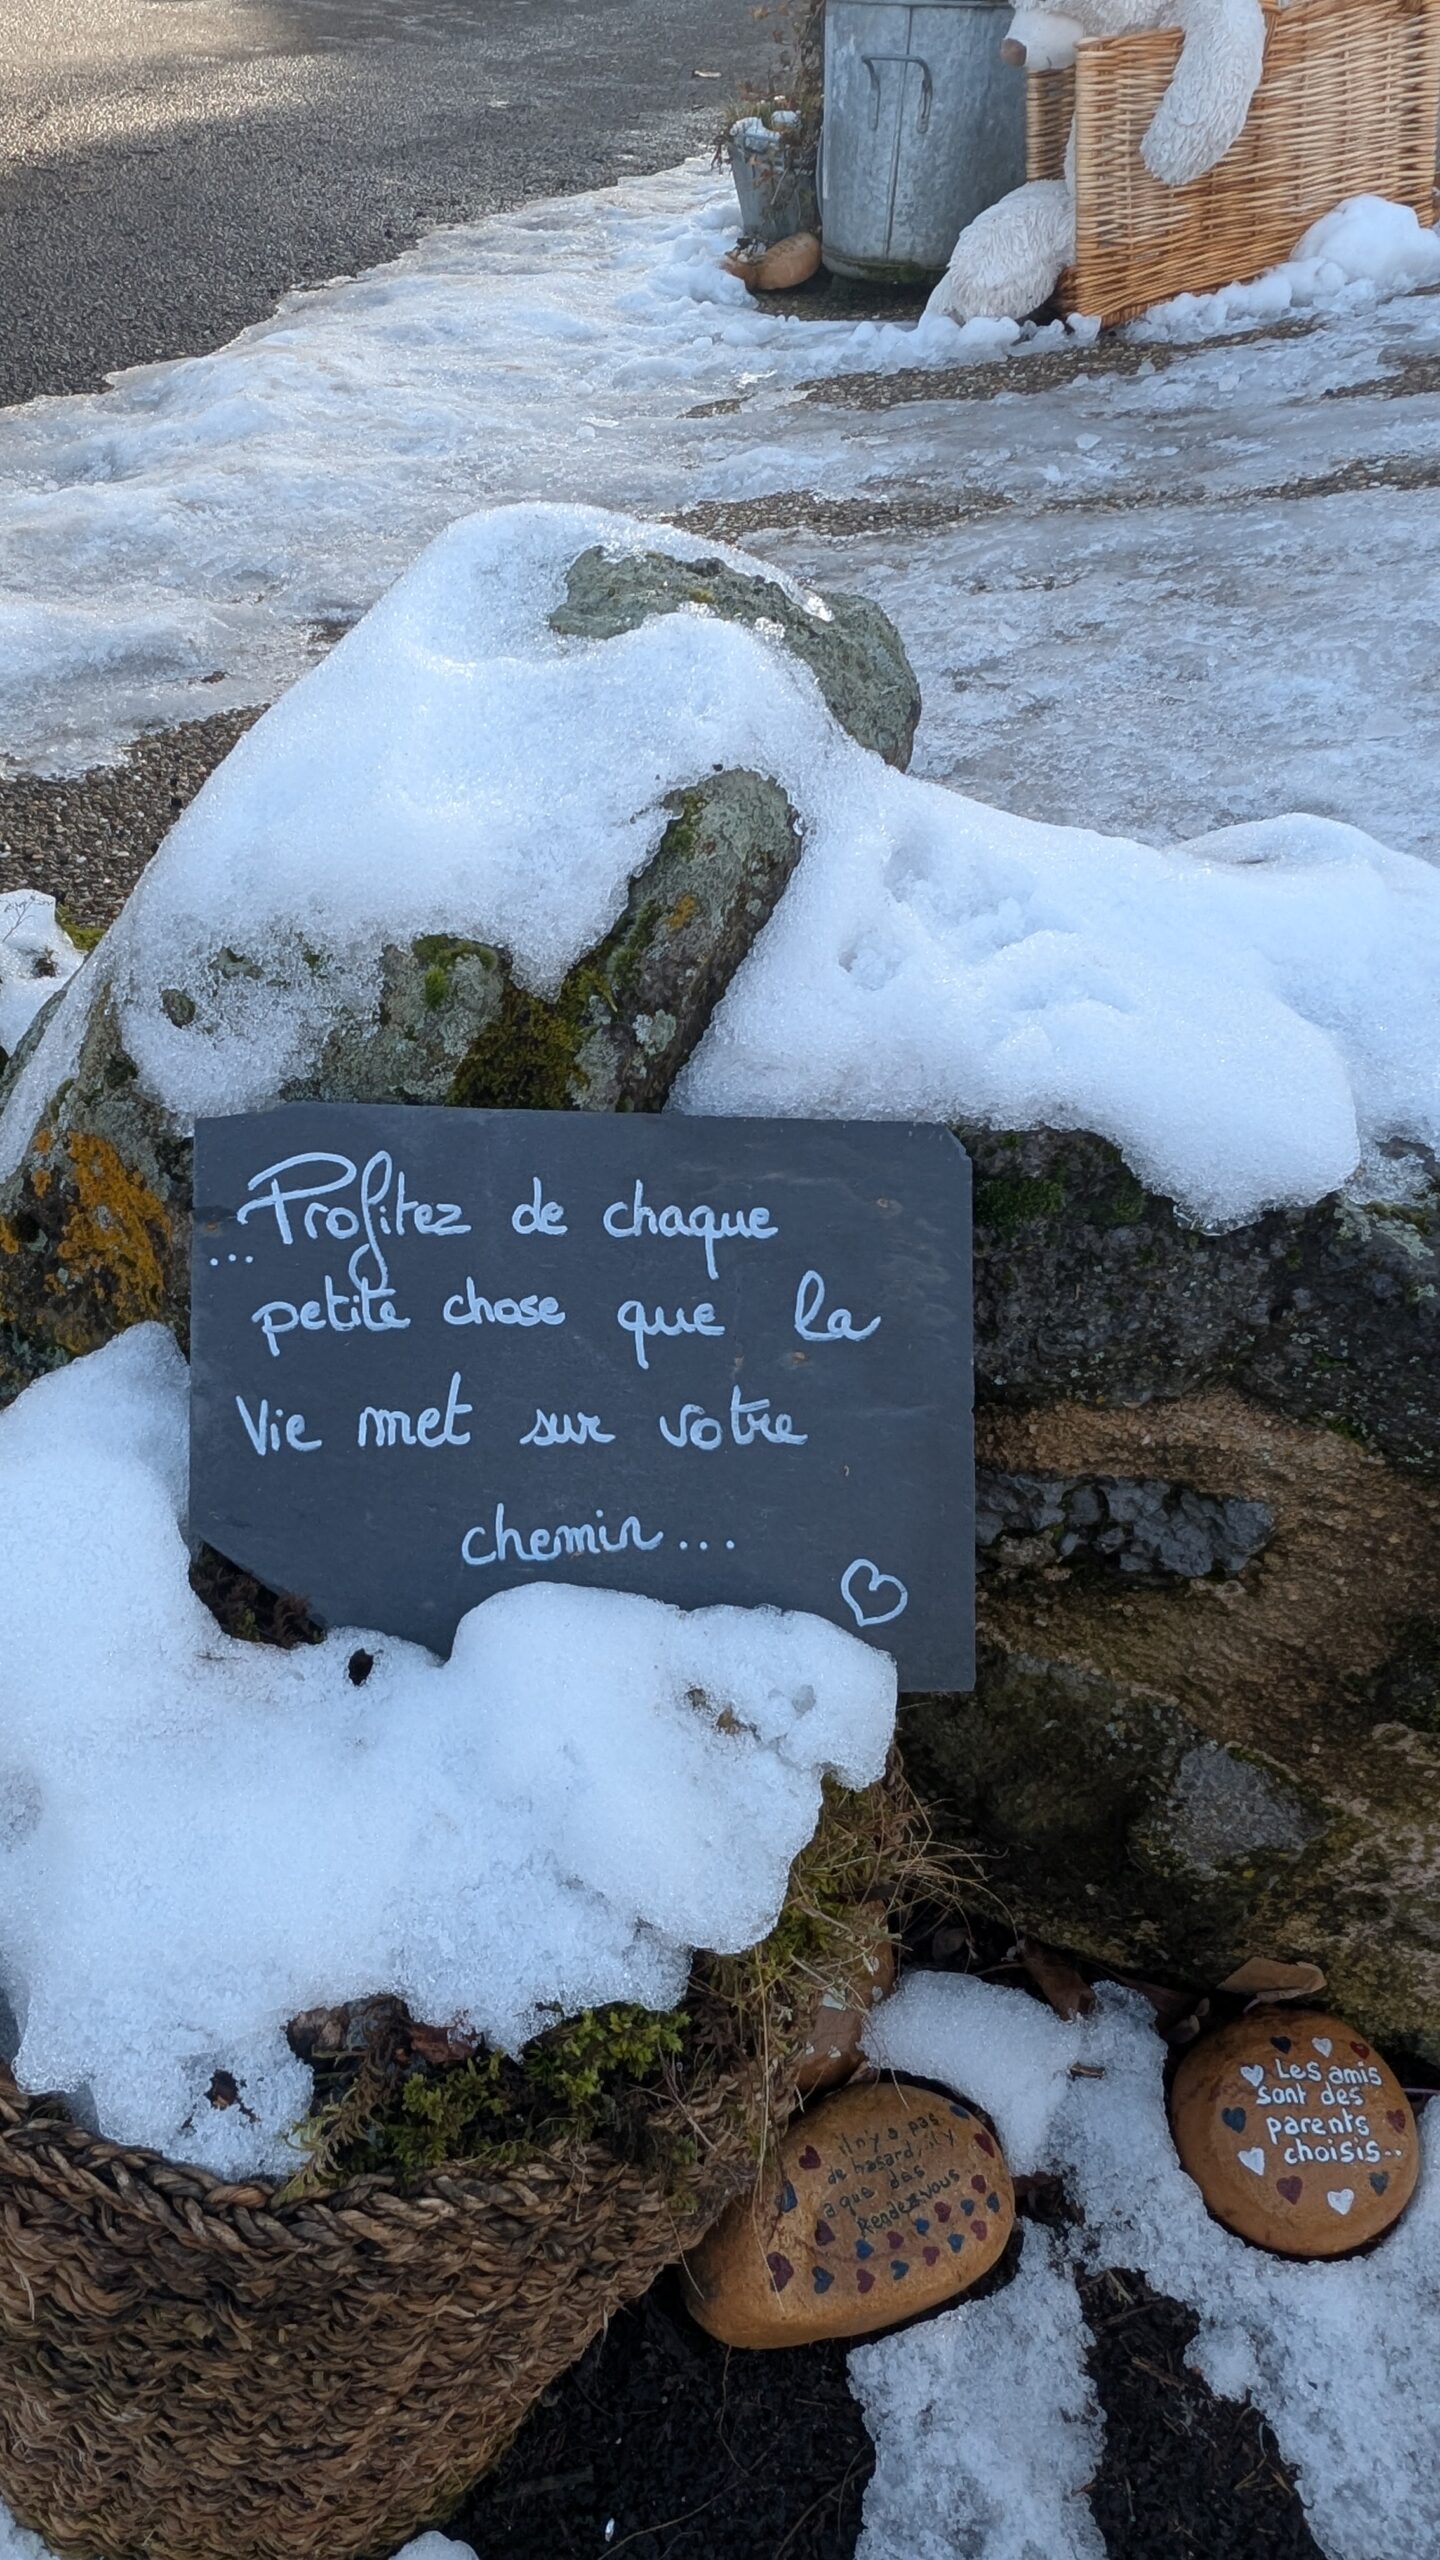 ... Profitez de chaque
petite chose que la
Vie met sur votre
chemin...
il n'y a pas
de hasard, il y
a que des
Rendez-vous
Les amis
sont des
parents
choisis..